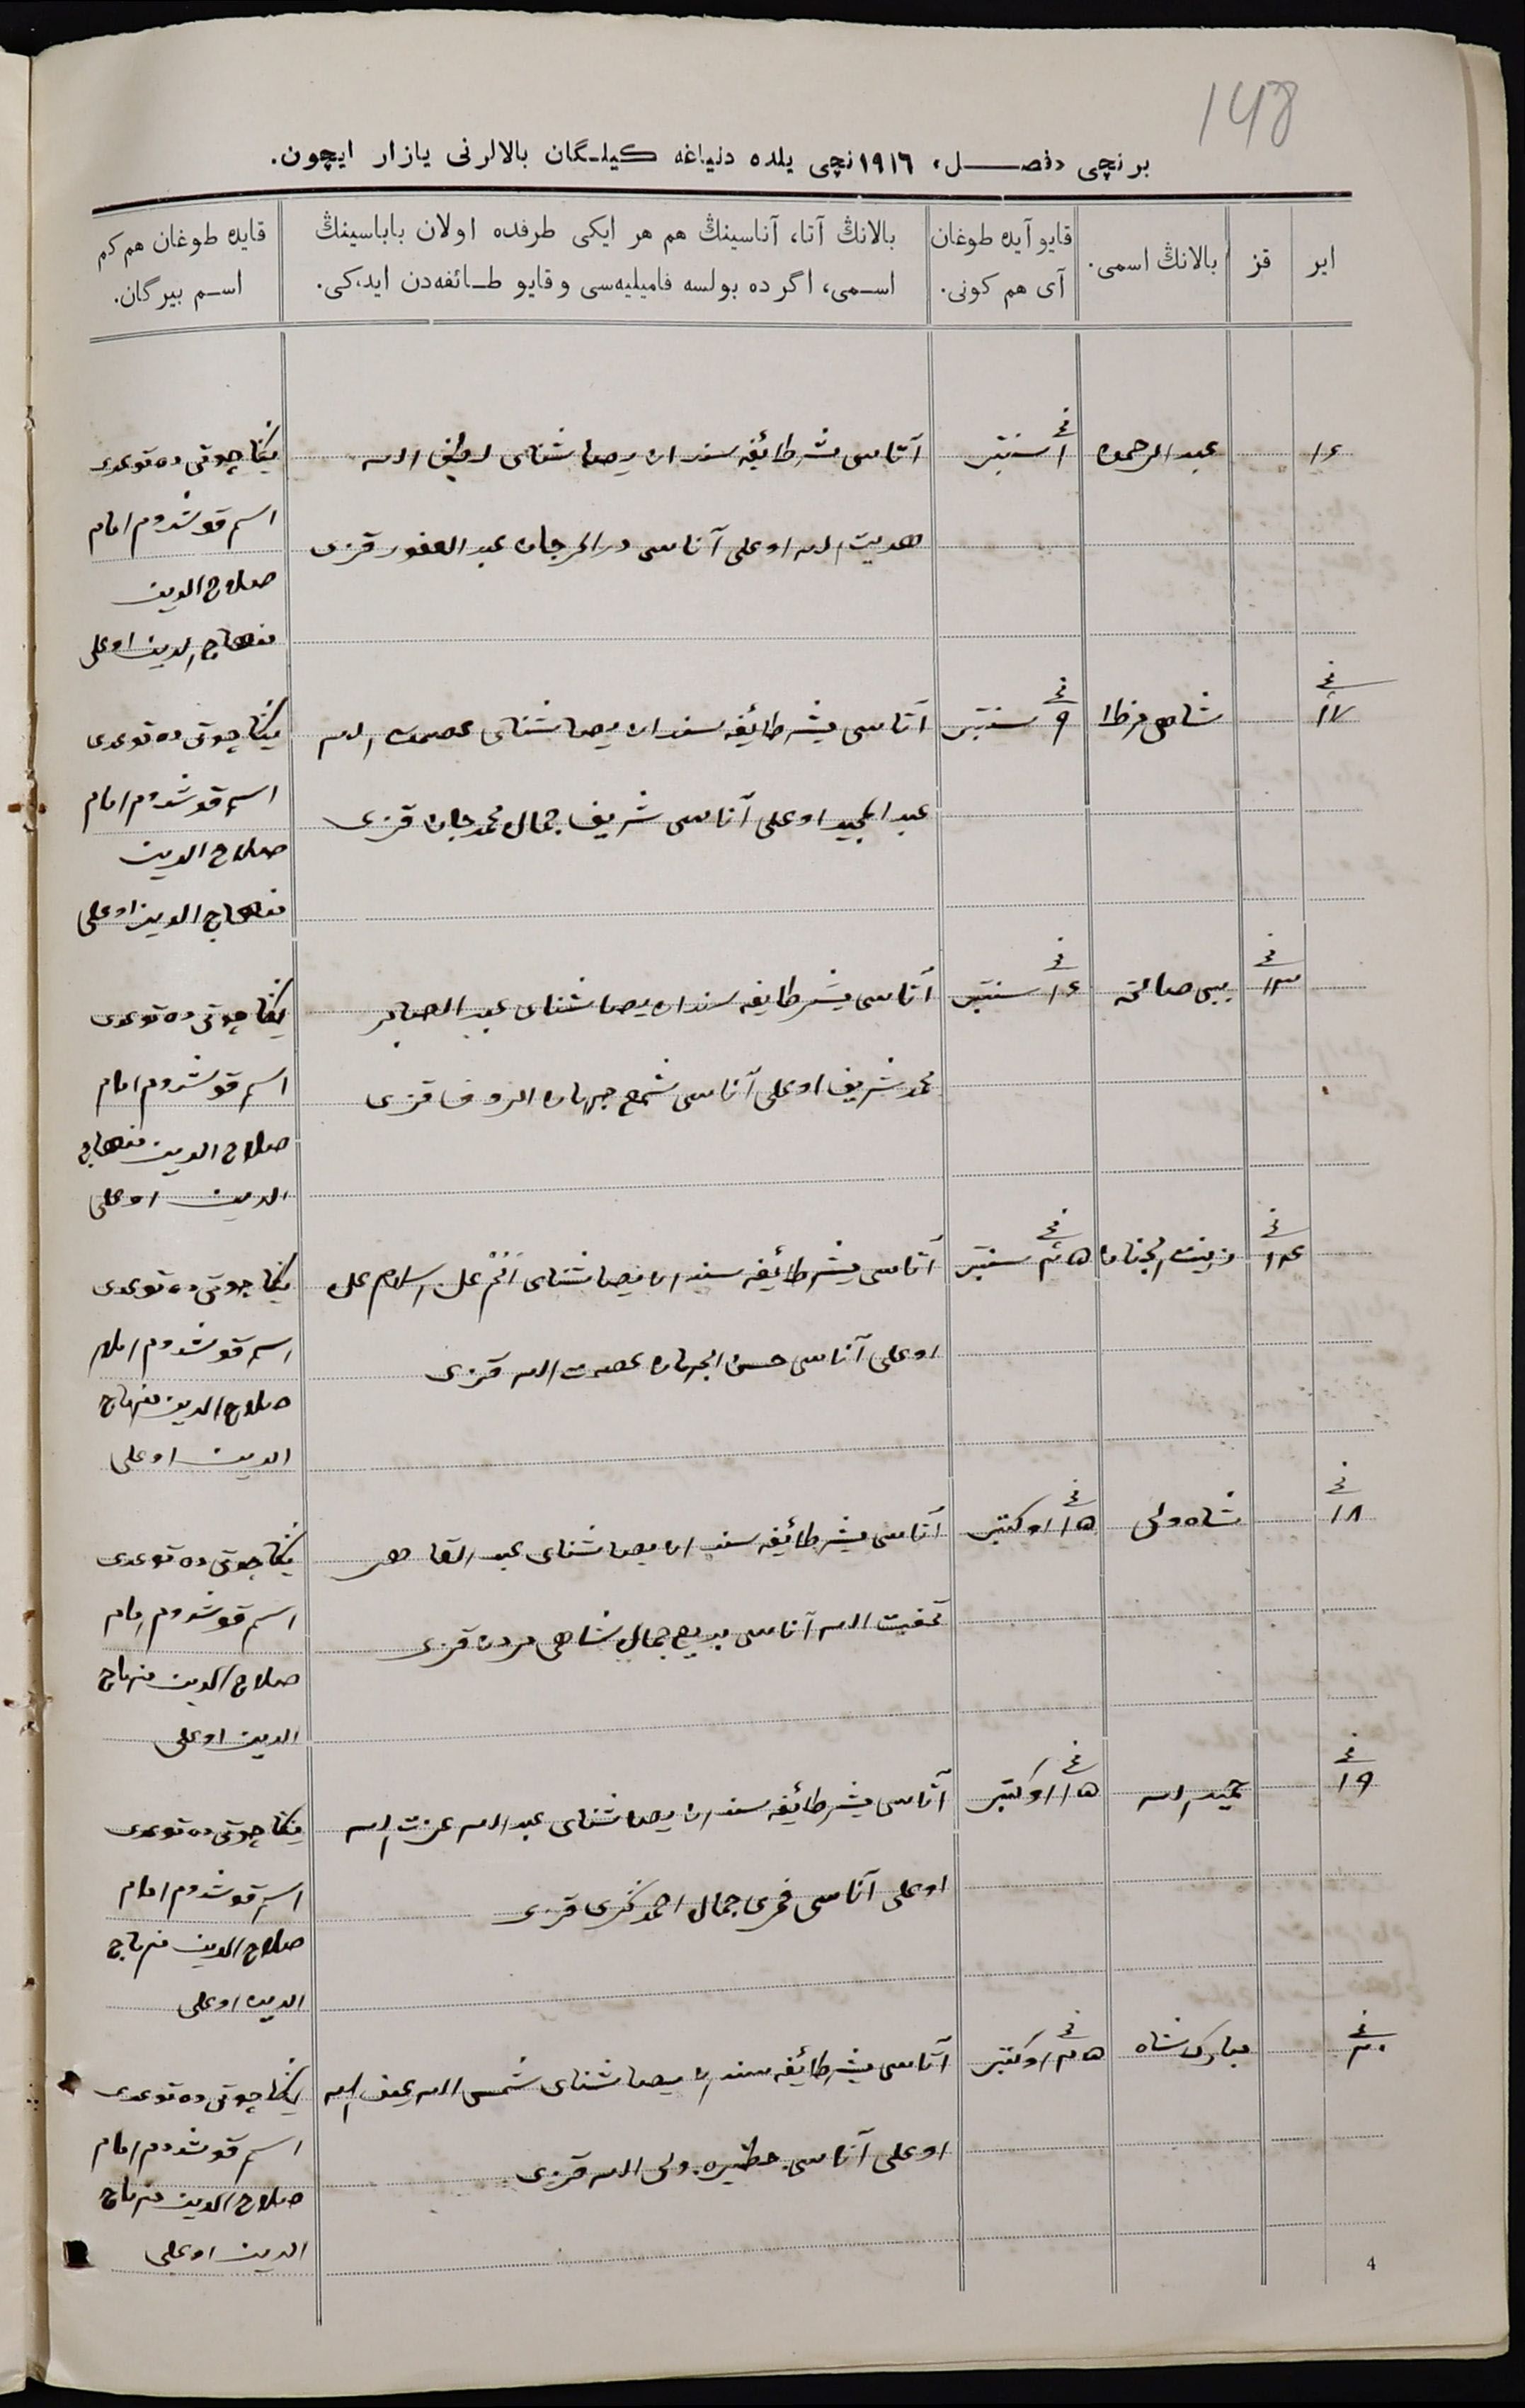 148
برنچی «فصل» ١٩١٦نچی یلده دنیاغه کیلگان بالالرنی یازار ایچون.
ایر
قز
بالانڭ اسمی.
قایو آیده طوغان
آی هم کونی.
بالانڭ آتا، آناسینڭ هم هر ایکی طرفده اولان باباسینڭ
اسمی، اگر ده بولسه فامیلیه‌سی و قایو طائفه‌دن ایدکی.
قایده طوغان هم کم
اسم بیرگان.
١٦ عبد الرحمن ١ سنتبر آتاسی طائفه سندان لطف الله
هدیت الله اوغلی آناسی در المرجان عبد الغفور قزی
چوتی ده توغدی
اسم قوشدوم امام
صلاح الدین
منهاج الدین اوغلی
١٧ شاهی ٩ سنتبر آتاسی طائفه سندان عصمت الله
عبد المجید اوغلی آناسی شریف جمال محمد جان قزی
چوتی ده توغدی
اسم قوشدوم امام
صلاح الدین
منهاج الدین اوغلی
١٣ بیبی صالحه ١٦ سنتبر آتاسی طایفه سندان عبد الصابر
محمد شریف اوغلی آناسی شمع جهان الروف قزی
چوتی ده توغدی
اسم قوشدوم امام
صلاح الدین منهاج
الدین اوغلی
١٤ زینت الجنان ٢٥ سنتبر آتاسی طائفه سندان
اوغلی آناسی حسن الجهان عصمت الله قزی
چوتی ده توغدی
اسم قوشدوم امام
صلاح الدین منهاج
الدین اوغلی
١٨ شاه ولی ١٥ اوکتبر آتاسی طائفه سندان عبد القاهر
آناسی بدیع جمال شاهی مردان قزی
چوتی ده توغدی
اسم قوشدوم امام
صلاح الدین منهاج
الدین اوغلی
١٩ حمید الله ١٥ اوکتبر آتاسی طائفه سندان عبد الله عزت الله
اوغلی آناسی فخری جمال احمد قزی
چوتی ده توغدی
اسم قوشدوم امام
صلاح الدین منهاج
الدین اوغلی
٢٠ مبارک شاه ٢٥ اوکتبر آتاسی طائفه سندان شمس الله
اوغلی آناسی ولی الله قزی
چوتی ده توغدی
اسم قوشدوم امام
صلاح الدین منهاج
الدین اوغلی
4